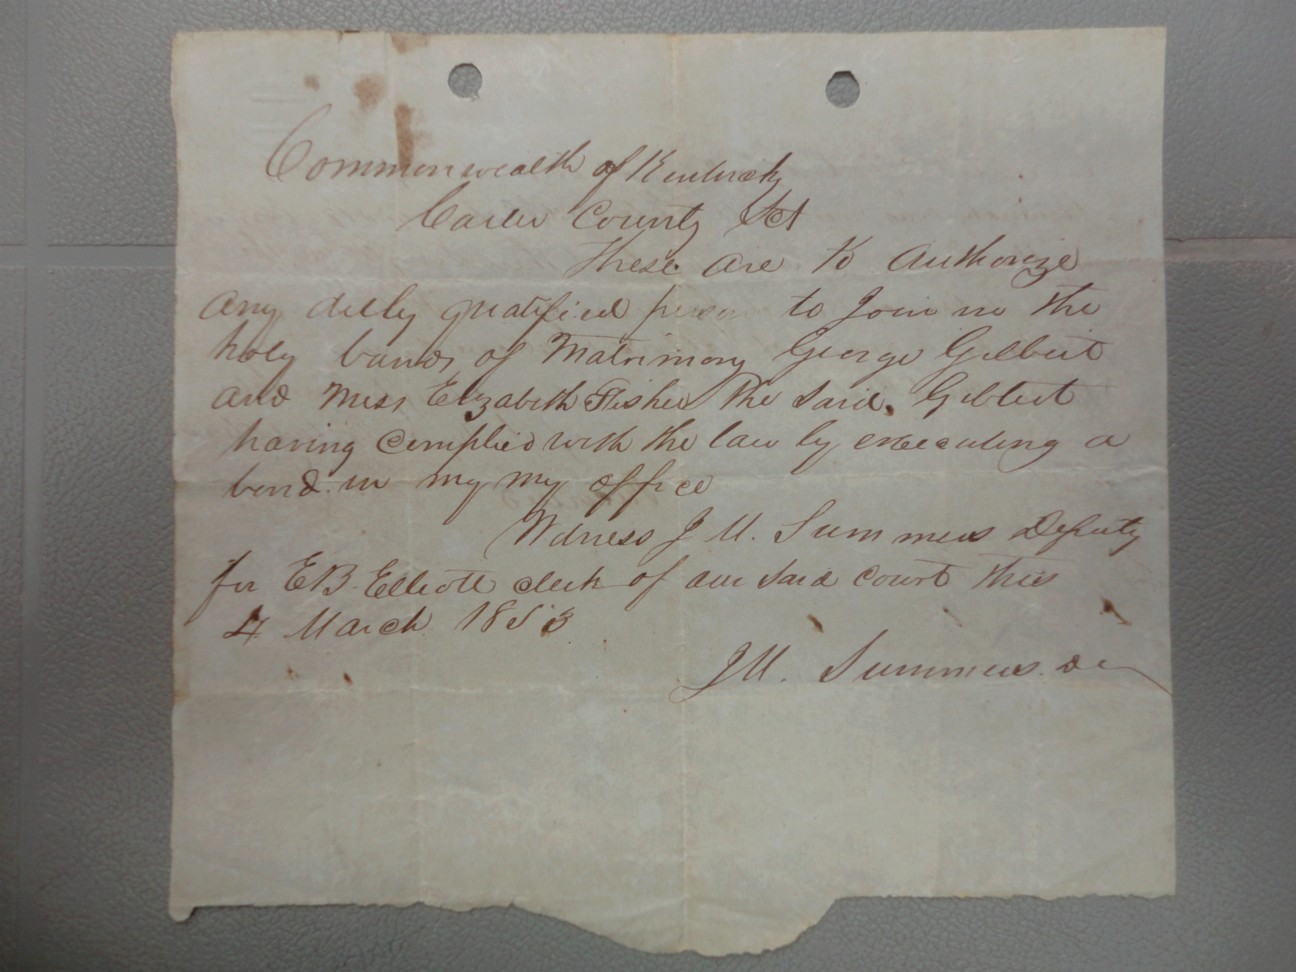 Commonwealth of Kentucky
Carter County Sct
These are to Authorize
any duly qualified person to Join in the
holy bands of Matrimony George Gilbert
and Miss Elizabeth Fisher the said Gilbert
having complied with the law by executing a
bond in my my office
Witness J M. Summers Deputy
for E B. Elliott clerk of our said court this
4 March 1853
J M. Summers. DC